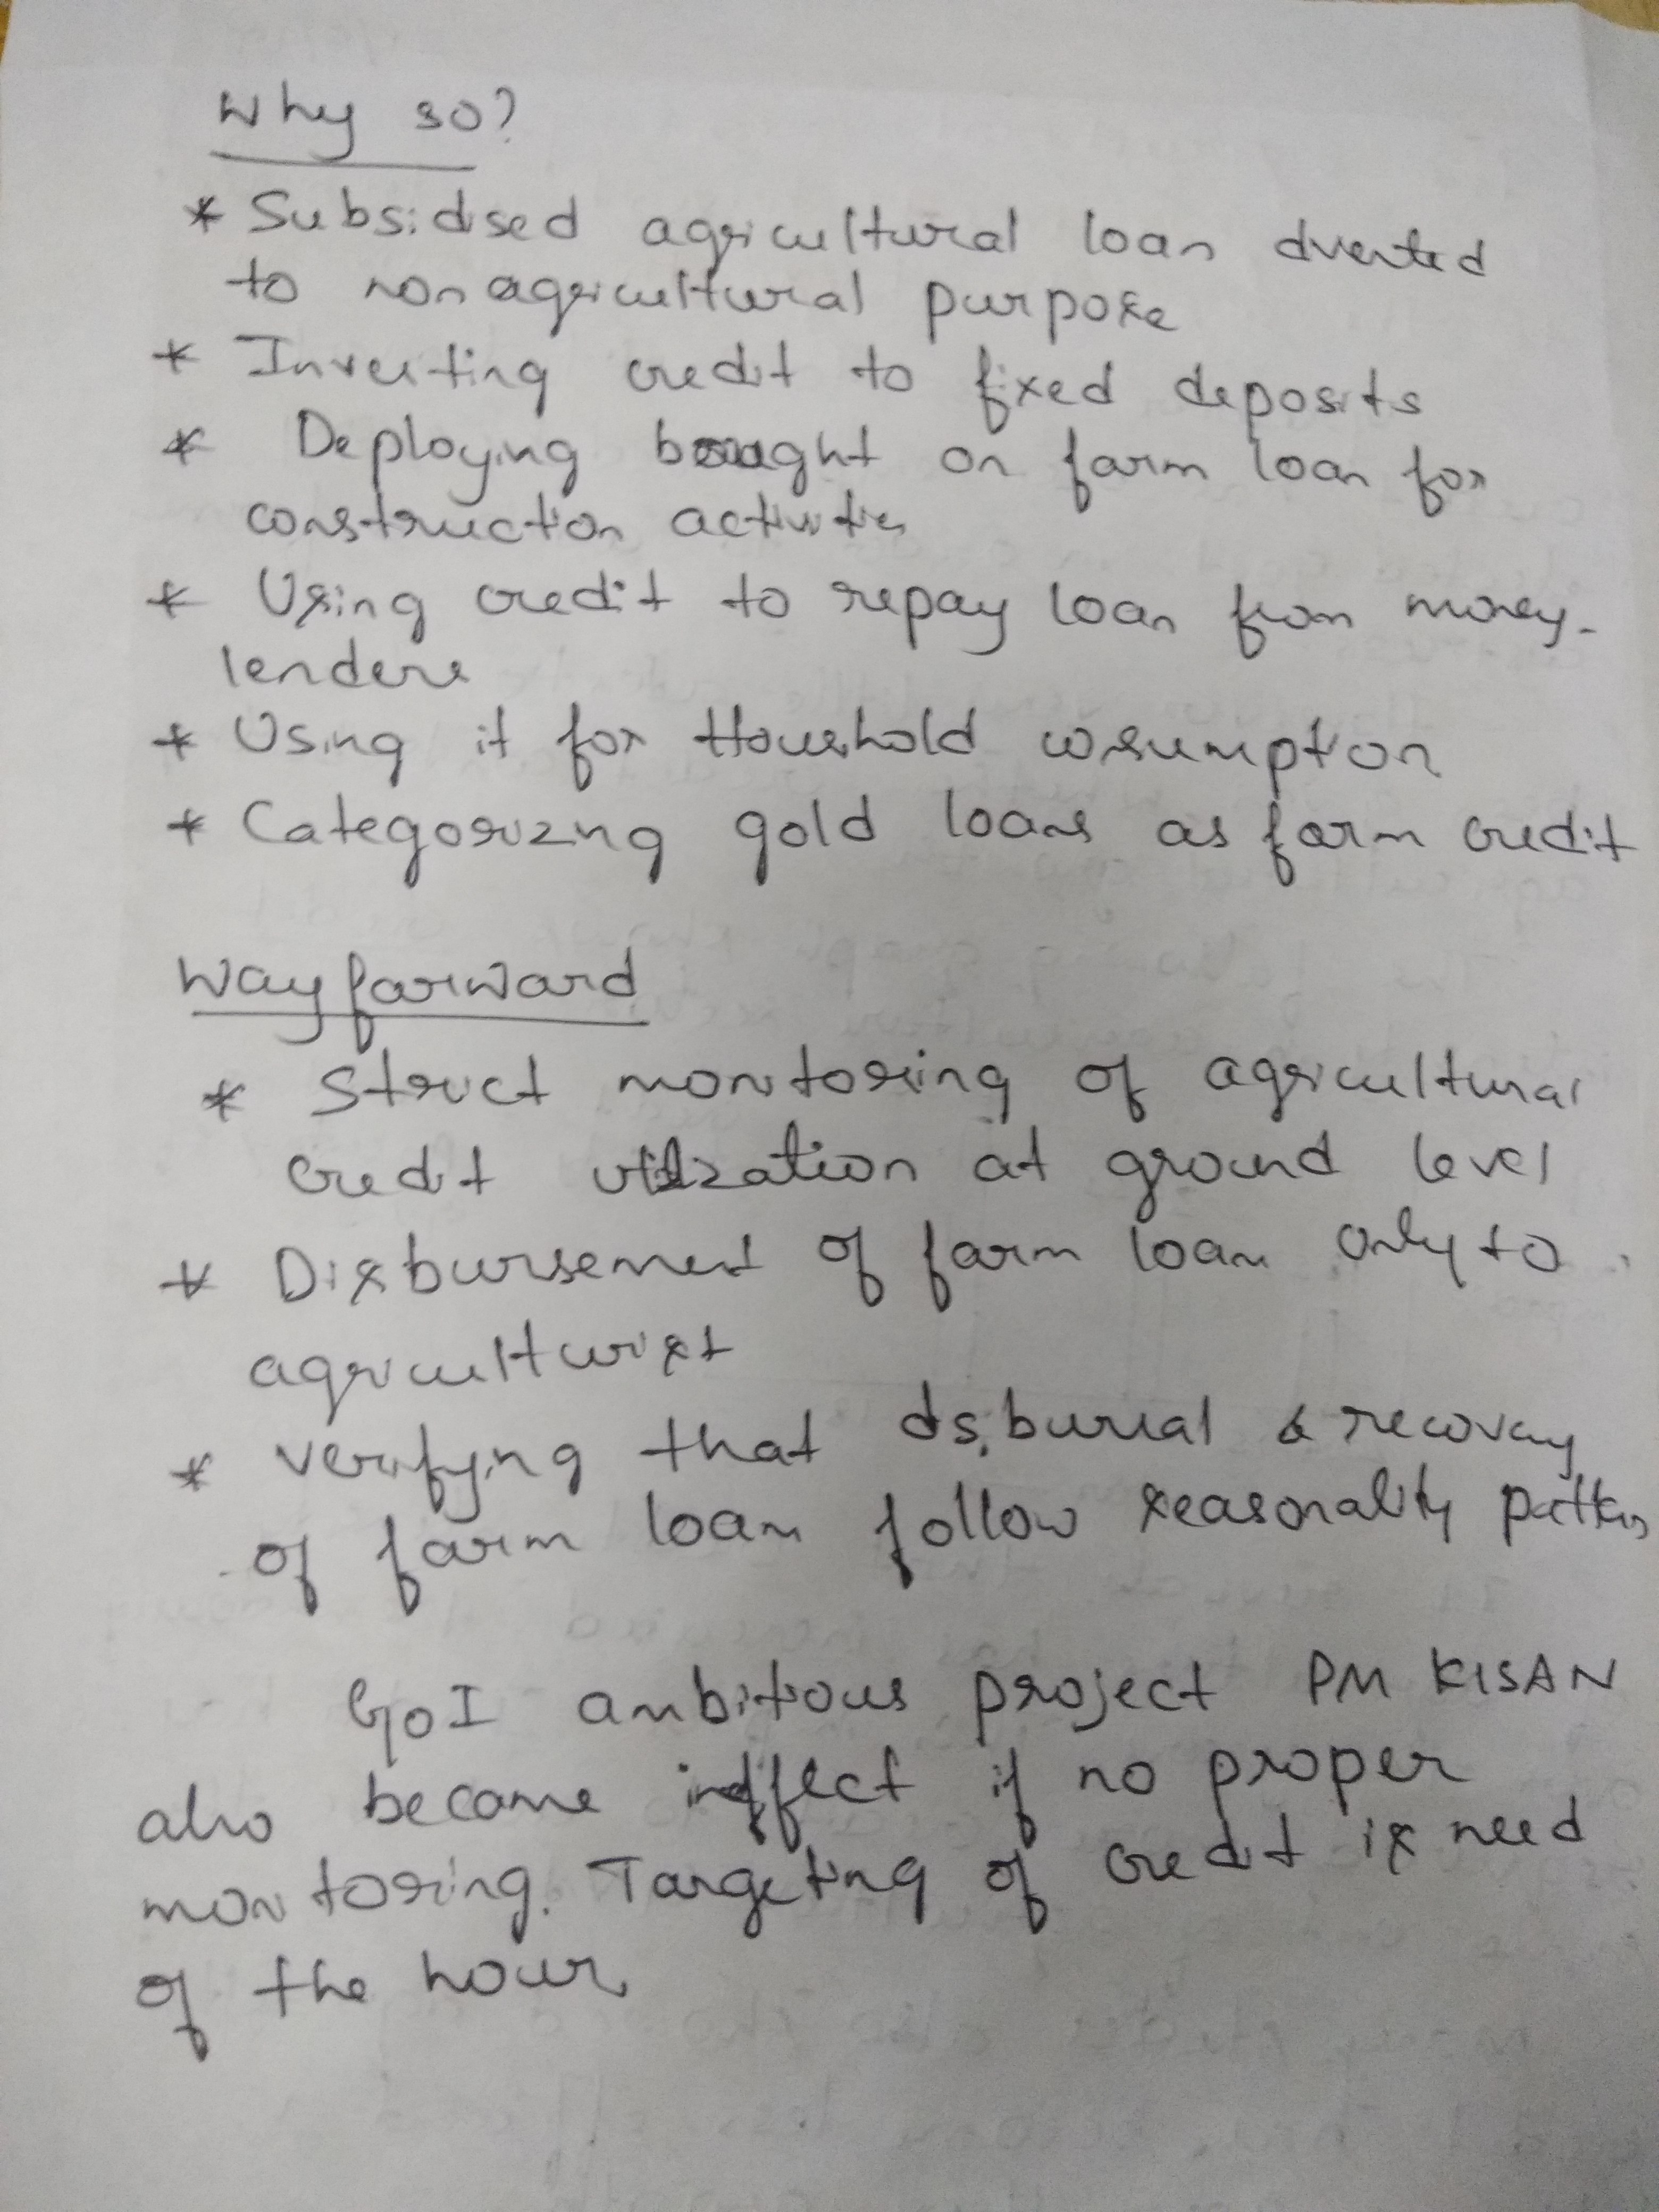 Why so?
* Subsidised agricultural loan dverted
to non agricultural purpose
* Investing credit to fixed deposits
* Deploying bought on farm loan for
construction activities
* Using credit to repay loan from money-
lenders
* Using it for Household consumption
* Categorizing gold loans as farm credit
Way forward
* Strict monitoring of agricultural
credit utilization at ground level
* Disbursement of farm loan only to
agriculturist
* verifying that disbursal & recovery
of farm loan follow seasonality pattern
GoI ambitious project PM KISAN
also become ineffect if no proper
monitoring. Targeting of credit is need
of the hour